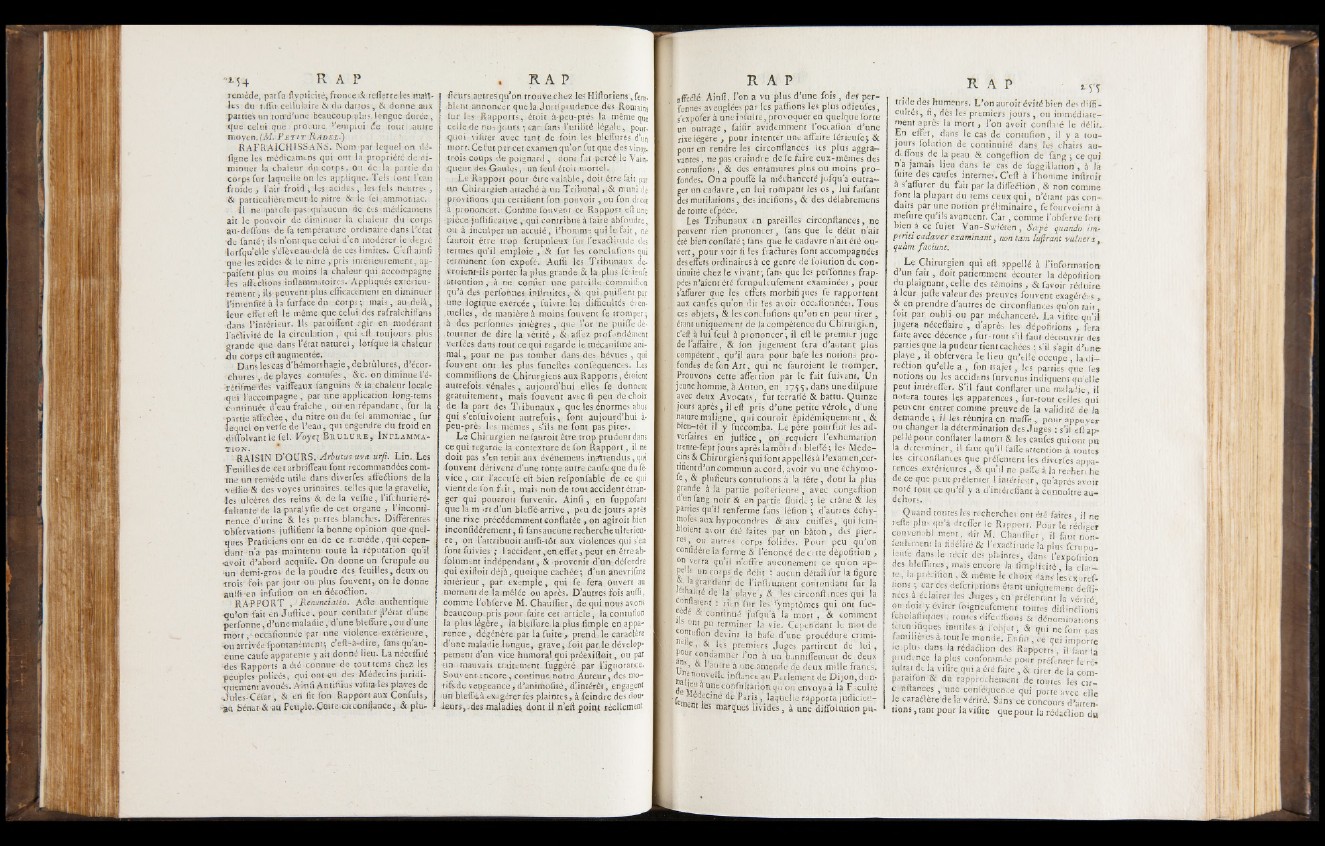 254 RAP
remède, par ſa ſtypticité, fronce & reſſerre les mail-
les du tiſſu cellulaire & du dartos, & donne aux
parties un ton d'une beaucoup plus longue durée,
que celui que procure l'emploi de tout autre
moyen. (M. PETIT RADEL.)
RAFRAICHISSANS. Nom par lequel on dé-
ſigne les médicamens qui ont la propriété de di-
minuer la chaleur du corps, ou de la partie du
corps ſur laquelle on les applique. Tels ſont l'eau
froide, l'air froid, les acides, les ſels neutres,
& particulièrement le nitre & le ſel ammoniac.
Il ne paroît pas qu'aucun de ces médicamens
ait le pouvoir de diminuer la chaleur du corps
au-deſſous de ſa température ordinaire dans l'état
de ſanté; ils n'ont que celui d'en modérer le degré
lorſqu'elle s'élève au-delà de ces limites. C'eſt ainſi
que les acides & le nitre, pris intérieurement, ap-
paiſent plus ou moins la chaleur qui accompagne
les affections inflammatoires. Appliqués extérieu-
rement, ils peuvent plus efficacement en diminuer
l'intenſité à la ſurface du corps; mais, au delà,
leur effet eſt le même que celui des rafraîchiſſans
dans l'intérieur. Ils paroiſſent agir en modérant
l'activité de la circulation, qui eſt toujours plus
grande que dans l'état naturel, lorſque la chaleur
du corps eſt augmentée.
Dans les cas d'hémorrhagie, de brûlures, d'écor-
chures, de playes contuſes, &c. on diminue l'é-
réthiſme des vaiſſeaux ſanguins & la chaleur locale
qui l'accompagne, par une application long-tems
continuée d'eau fraîche, ou en répandant, ſur la
partie affectée, du nitre ou du ſel ammoniac, ſur
lequel on verſe de l'eau, qui engendre du froid en
diſſolvant le ſel. Voyez BRULURE, INFLAMMA-
TION.
RAISIN D'OURS. Arbutus uva urſi. Lin. Les
Feuilles de cet arbriſſeau ſont recommandées com-
me un remède utile dans diverſes affections de la
veſſie & des voyes urinaires telles que la gravelle,
les ulcères des reins & de la veſſie, l'iſchurie ré-
ſultante de la paralyſie de cet organe, l'inconti-
nence d'urine & les pertes blanches. Différentes
obſervations juſtifient la bonne opinion que quel-
ques Praticiens ont eu de ce remède, qui cepen-
dant n'a pas maintenu toute la réputation qu'il
avoit d'abord acquiſe. On donne un ſcrupule ou
un demi-gros de la poudre des feuilles, deux ou
trois fois par jour ou plus ſouvent, on le donne
auſſi en infuſion ou en décoction.
RAPPORT, Renunciatio. Acte authentique
qu'on fait en Juſtice, pour conſtater l'état d'une
perſonne, d'une maladie, d'une bleſſure, ou d'une
mort, occaſionnée par une violence extérieure,
ou arrivée ſpontanément; c'eſt-à-dire, ſans qu'au-
cune cauſe apparente y ait donné lieu. La néceſſité
des Rapports a été connue de tout tems chez les
peuples policés, qui ont eu des Médecins juridi-
quement avoués. Ainſi Antiſtius viſita les playes de
Jules-Céſar, & en fit ſon Rapport aux Conſuls,
au Sénat & au Peuple. Cette circonſtance, & plu-
RAP
ſieurs autres qu'on trouve chez les Hiſtoriens, ſem-
blent annoncer que la Juriſprudence des Romains
ſur les Rapports, étoit à-peu-près la même que
celle de nos jours; car ſans l'utilité légale, pour-
quoi viſiter avec tant de ſoin les bleſſures d'un
mort. Ce fut par cet examen qu'on ſut que des vingt-
trois coups de poignard, dont fut percé le Vain-
queur des Gaules, un ſeul étoit mortel.
Le Rapport pour être valable, doit être fait par
un Chirurgien attaché à un Tribunal, & muni de
proviſions qui certifient ſon pouvoir, ou ſon droit
à prononcer. Comme ſouvent ce Rapport eſt une
pièce juſtificative, qui contribue à faire abſoudre,
ou à inculper un accuſé, l'homme qui le fait, ne
ſauroit être trop ſcrupuleux ſur l'exactitude des
termes qu'il emploie, & ſur les concluſions qui
terminent ſon expoſé. Auſſi les Tribunaux de-
vroient-ils porter la plus grande & la plus ſérieuſe
attention, à ne confier une pareille commiſſion
qu'à des perſonnes inſtruites, & qui puiſſent par
une logique exercée, ſuivre les difficultés éven-
tuelles, de manière à moins ſouvent ſe tromper;
à des perſonnes intègres, que l'or ne puiſſe dé-
tourner de dire la vérité, & aſſez profondément
verſées dans tout ce qui regarde le mécaniſme ani-
mal, pour ne pas tomber dans des bévues, qui
ſouvent ont les plus funeſtes conſéquences. Les
commiſſions de Chirurgiens aux Rapports, étoient
autrefois vénales, aujourd'hui elles ſe donnent
gratuitement, mais ſouvent avec ſi peu de choix
de la part des Tribunaux, que les énormes abus
qui s'enſuivoient autrefois, ſont aujourd'hui à-
peu-près les mêmes, s'ils ne ſont pas pires.
Le Chirurgien ne ſauroit être trop prudent dans
ce qui regarde la contexture de ſon Rapport, il ne
doit pas s'en tenir aux événemens inattendus, qui
ſouvent dérivent d'une toute autre cauſe que du ſé-
vice, car l'accuſé eſt bien reſponſable de ce qui
vient de ſon fait, mais non de tout accident étran-
ger qui pourroit ſurvenir. Ainſi, en ſuppoſant
que la mort d'un bleſſé arrive, peu de jours après
une rixe précédemment conſtatée, on agiroit bien
inconſidérément, ſi ſans aucune recherche ultérieu-
re, on l'attribuoit auſſi-tôt aux violences qui s'en
ſont ſuivies; l'accident, en effet, peut en être ab-
ſolument indépendant, & provenir d'un déſordre
qui exiſtoit déjà, quoique cachée; d'un anevriſme
intérieur, par exemple, qui ſe ſera ouvert au
moment de la mêlée ou après. D'autres fois auſſi,
comme l'obſerve M. Chauſſier, de qui nous avons
beaucoup pris pour faire cet article, la contuſion
la plus légère, la bleſſure la plus ſimple en appa-
rence, dégénère par la ſuite, prend le caractère
d'une maladie longue, grave, ſoit par le dévelop-
pement d'un vice humoral qui préexiſtoit, ou par
un mauvais traitement ſuggéré par l'ignorance.
Souvent encore, continue notre Auteur, des mo-
tifs de vengeance, d'animoſité, d'intérêt, engagent
un bleſſé à exagérer ſes plaintes, à feindre des dou-
leurs, des maladies dont il n'eſt point réellement
RAP
affecté. Ainſi, l'on a vu plus d'une fois, des per-
ſonnes aveuglées par les paſſions les plus odieuſes,
s'expoſer à une inſulte, provoquer en quelque ſorte
un outrage, ſaiſir avidement l'occaſion d'une
rixe légère, pour intenter une affaire ſérieuſe; &
pour en rendre les circonſtances les plus aggra-
vantes, ne pas craindre de ſe faire eux-mêmes des
contuſions, & des entamures plus ou moins pro-
fondes. On a pouſſé la méchanceté juſqu'à outra-
ger un cadavre, en lui rompant les os, lui faiſant
des mutilations, des inciſions, & des délabremens
de toute eſpèce.
Les Tribunaux en pareilles circonſtances, ne
peuvent rien prononcer, ſans que le délit n'ait
été bien conſtaté; ſans que le cadavre n'ait été ou-
vert, pour voir ſi les fractures ſont accompagnées
des effets ordinaires à ce genre de ſolution de con-
tinuité chez le vivant; ſans que les perſonnes frap-
pées n'aient été ſcrupuleuſement examinées, pour
s'aſſurer que les effets morbifiques ſe rapportent
aux cauſes qu'on dit les avoir occaſionnés. Tous
ces objets, & les concluſions qu'on en peut tirer,
étant uniquement de la compétence du Chirurgien,
c'eſt à lui ſeul à prononcer, il eſt le premier juge
de l'affaire, & ſon jugement ſera d'autant plus
compétent, qu'il aura pour baſe les notions pro-
fondes de ſon Art, qui ne ſauroient le tromper.
Prouvons cette aſſertion par le fait ſuivant. Un
jeune homme, à Auton, en 1755, dans une diſpute
avec deux Avocats, fut terraſſé & battu. Quinze
jours après, il eſt pris d'une petite vérole, d'une
nature maligne, qui couroit épidémiquement, &
bien-tôt il y ſuccomba. Le père pourſuit les ad-
verſaires en juſtice, on requiert l'exhumation
trente-ſept jours après la mort du bleſſé; les Méde-
cins & Chirurgiens qui ſont appellés à l'examen, cer-
tifient d'un commun accord, avoir vu une échymo-
ſe, & pluſieurs contuſions à la tête, dont la plus
grande à la partie poſtérieure, avec congeſtion
d'un ſang noir & en partie fluide; le crâne & les
parties qu'il renferme ſans léſion; d'autres échy-
moſes aux hypocondres & aux cuiſſes, qui ſem-
bloient avoir été faites par un bâton, des pier-
res, ou autres corps ſolides. Pour peu qu'on
conſidère la forme & l'énoncé de cette dépoſition,
on verra qu'il n'eſſuie aucunement ce qu'on ap-
pelle un corps de délit: aucun détail ſur la figure
& la grandeur de l'inſtrument contondant ſur la
léthalité de la playe, & les circonſtances qui la
conſtatent: rien ſur les ſymptômes qui ont ſuc-
cédé & continué juſqu'à la mort, & comment
ils ont pu terminer la vie. Cependant le mot de
contuſion devint la baſe d'une procédure crimi-
nelle, & les premiers Juges partirent de lui,
pour condamner l'un à un banniſſement de deux
ans, & l'autre à une amende de deux mille francs.
Une nouvelle inſtance au Parlement de Dijon, don-
na lieu à une conſultation qu'on envoya à la Faculté
de Médecine de Paris, laquelle rapporta judicieu-
ſement les marques livides, à une diſſolution pu-
RAP 255
tride des humeurs. L'on auroit évité bien des diffi-
cultés, ſi, dès les premiers jours, ou immédiate-
ment après la mort, l'on avoit conſtaté le délit.
En effet, dans le cas de contuſion, il y a tou-
jours ſolution de continuité dans les chairs au-
deſſous de la peau & congeſtion de ſang; ce qui
n'a jamais lieu dans le cas de ſuggillation, à la
ſuite des cauſes internes. C'eſt à l'homme inſtruit
à s'aſſurer du fait par la diſſection, & non comme
font la plupart du tems ceux qui, n'étant pas con-
duits par une notion préliminaire, ſe fourvoient à
meſure qu'ils avancent. Car, comme l'obſerve fort
bien à ce ſujet Van-Swiéten, Sæpè quando im-
periti cadaver examinant, non tam luſtrant vulnera,
quàm faciunt.
Le Chirurgien qui eſt appellé à l'information
d'un fait, doit patiemment écouter la dépoſition
du plaignant, celle des témoins, & ſavoir réduire
à leur juſte valeur des preuves ſouvent exagérées,
& en prendre d'autres de circonſtances qu'on tait,
ſoit par oubli ou par méchanceté. La viſite qu'il
jugera néceſſaire, d'après les dépoſitions, ſera
faite avec décence, ſur-tout s'il faut découvrir des
parties que la pudeur tient cachées: s'il s'agit d'une
playe, il obſervera le lieu qu'elle occupe, la di-
rection qu'elle a, ſon trajet, les parties que ſes
notions ou les accidens ſurvenus indiquent qu'elle
peut intéreſſer. S'il faut conſtater une maladie, il
notera toutes les apparences, ſur-tout celles qui
peuvent entrer comme preuve de la validité de la
demande; il les réunira en maſſe, pour appuyer
ou changer la détermination des Juges: s'il eſt ap-
pellé pour conſtater la mort & les cauſes qui ont pu
la déterminer, il faut qu'il faſſe attention à toutes
les circonſtances que préſentent les diverſes appa-
rences extérieures, & qu'il ne paſſe à la recherche
de ce que peut préſenter l'intérieur, qu'après avoir
noté tout ce qu'il y a d'intéreſſant à connoître au-
dehors.
Quand toutes les recherches ont été faites, il ne
reſte plus qu'à dreſſer le Rapport. Pour le rédiger
convenablement, dit M. Chauſſier, il faut non-
ſeulement la fidélité & l'exactitude la plus ſcrupu-
leuſe dans le récit des plaintes, dans l'expoſition
des bleſſures, mais encore la ſimplicité, la clar-
té, la préciſion, & même le choix dans les expreſ-
ſions; car ces deſcriptions étant uniquement deſti-
nées à éclairer les Juges, en préſentant la vérité,
on doit y éviter ſoigneuſement toutes diſtinctions
ſcholaſtiques, toutes diſſertations & dénominations
techniques inutiles à l'objet, & qui ne ſont pas
familières à tout le monde. Enfin, ce qui importe
le plus dans la rédaction des Rapports, il faut la
prudence la plus conſommée pour préſenter le ré-
ſultat de la viſite qui a été faite, & tirer de la com-
paraiſon & du rapprochement de toutes les cir-
conſtances, une conſéquence qui porte avec elle
le caractère de la vérité. Sans ce concours d'atten-
tions, tant pour la viſite que pour la rédaction du